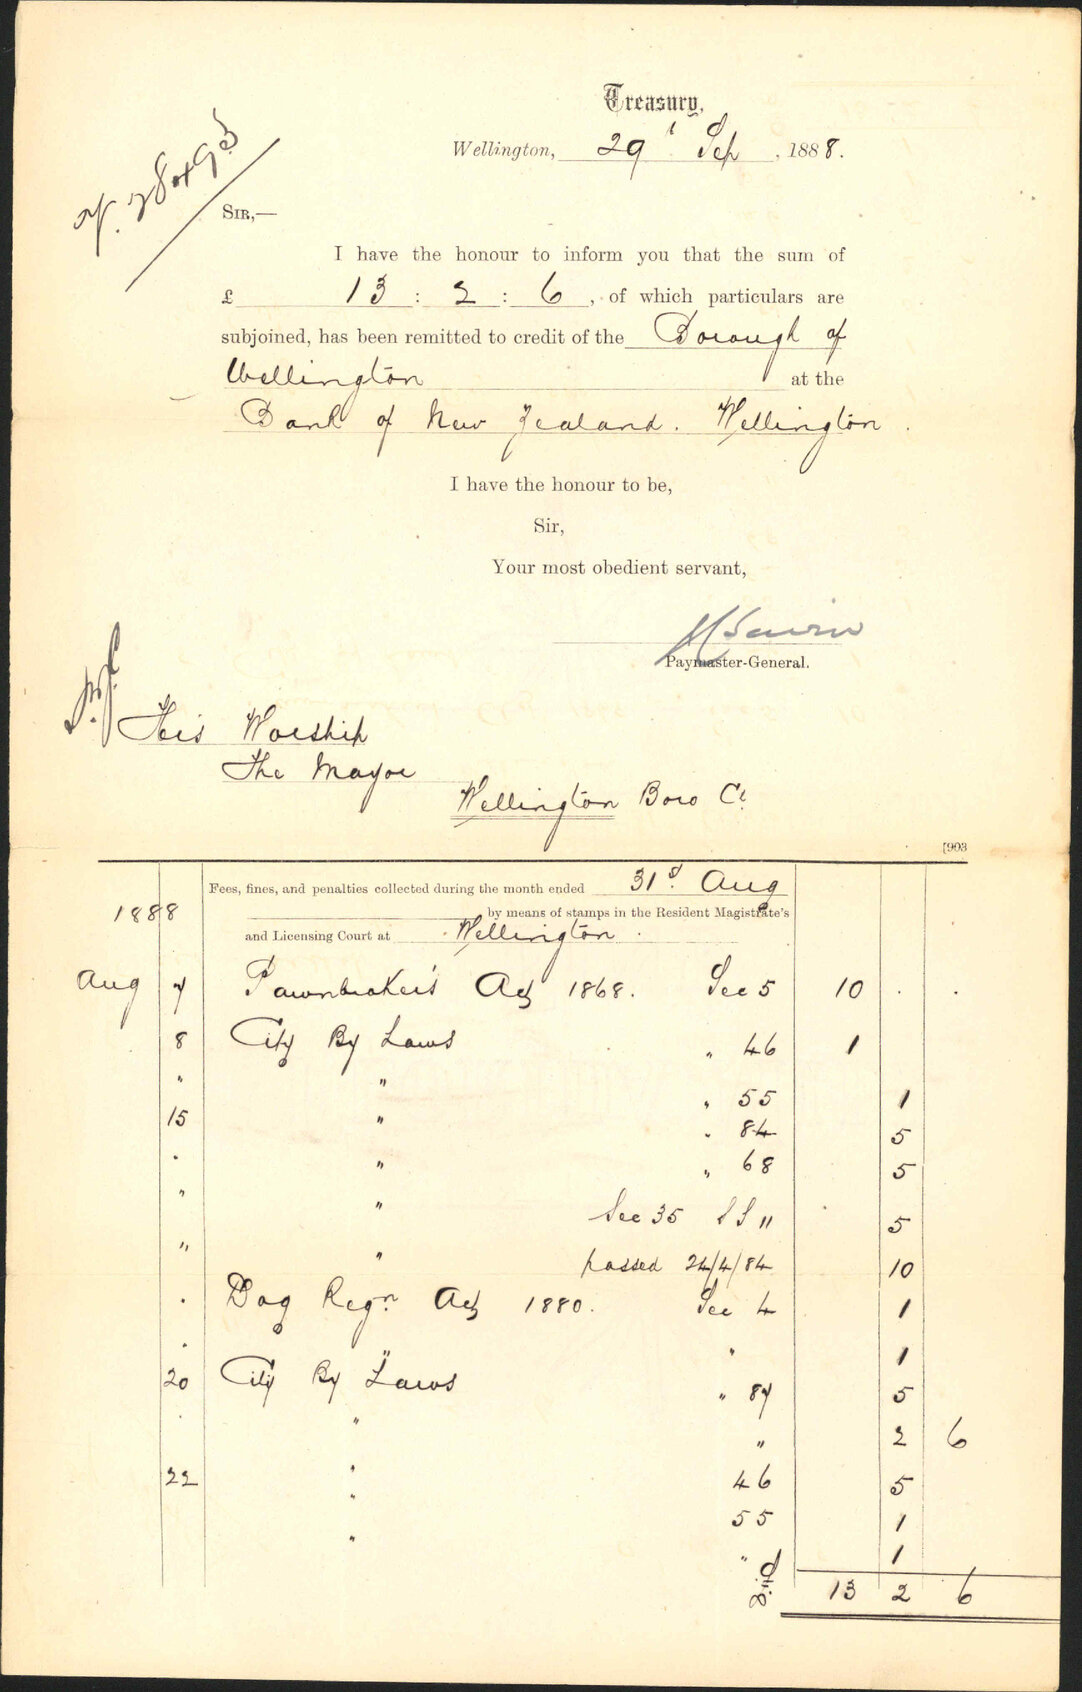 Treasury,
Wellington, 29t Sep, 1888.
SIR,—
I have the honour to inform you that the sum of
£ 13 : 2 : 6, of which particulars are
subjoined, has been remitted to credit of the Borough of
Wellington at the
Bank of New Zealand. Wellington.
I have the honour to be,
Sir,
Your most obedient servant,
Paymaster-General.
His Worship
The Mayor
Wellington Boro Cl
[903
Fees, fines, and penalties collected during the month ended 31st Aug
1888 by means of stamps in the Resident Magistrate's
and Licensing Court at Wellington.
Aug 7 Pawnbroker's Act 1868. Sec 5 10 . .
8 City By Laws " 46 1
" " " 55 1
15 " " 84 5
" " " 68 5
" " Sec 35 L S " 5
" " passed 24/4/84 10
" Dog Regn Act 1880. Sec 4 1
" " " 1
20 City By Laws " 87 5
" " " 2 6
22 " 46 5
" 55 1
" " 1
13 2 6